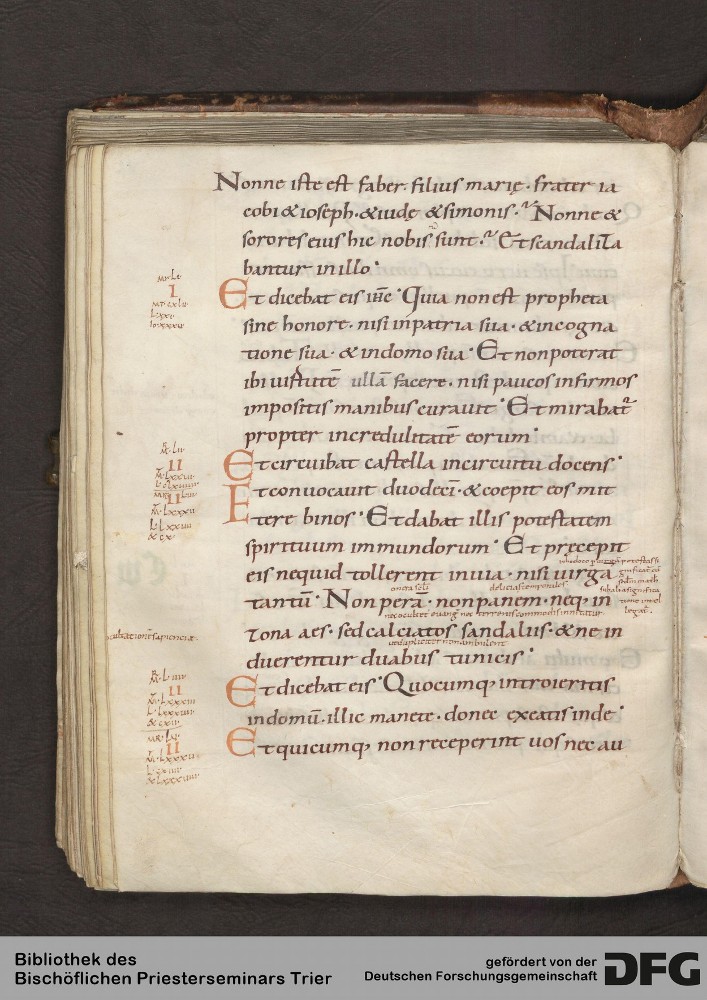 Nonne iste est faber· filius marię· frater ia
cobi & ioseph· & iudę & simonis· Nonne &
sorores eius hic nobis sunt· Et scandaliza
bantur in illo·
Et dicebat eis Quia non est propheta
sine honore· nisi in patria sua· & in cogna
tione sua· & in domo sua· Et non poterat
ibi uirtutē ullā facere· nisi paucos infirmos
impositis manibus curauit· Et mirabat̄
propter incredulitatē eorum·
Et circuibat castella in circuitu docens·
Et conuocauit duodecī· & coepit eos mit
tere binos· Et dabat illis potestatem
spirituum immundorum· Et pręcepit
eis nequid tollerent in uia· nisi uirga
tantū· Non perā· non panem· neq; in
zona aes· sed calciatos sandaliis· & ne in
duerentur duabus tunicis·
Et dicebat eis· Quocumq; introieritis
in domū· illic manete· donec exeatis inde·
Et quicumq; non receperint uos nec au
I
II
II
II
II
Bibliothek des
Bischöflichen Priesterseminars Trier
gefördert von der
Deutschen Forschungsgemeinschaft
DFG